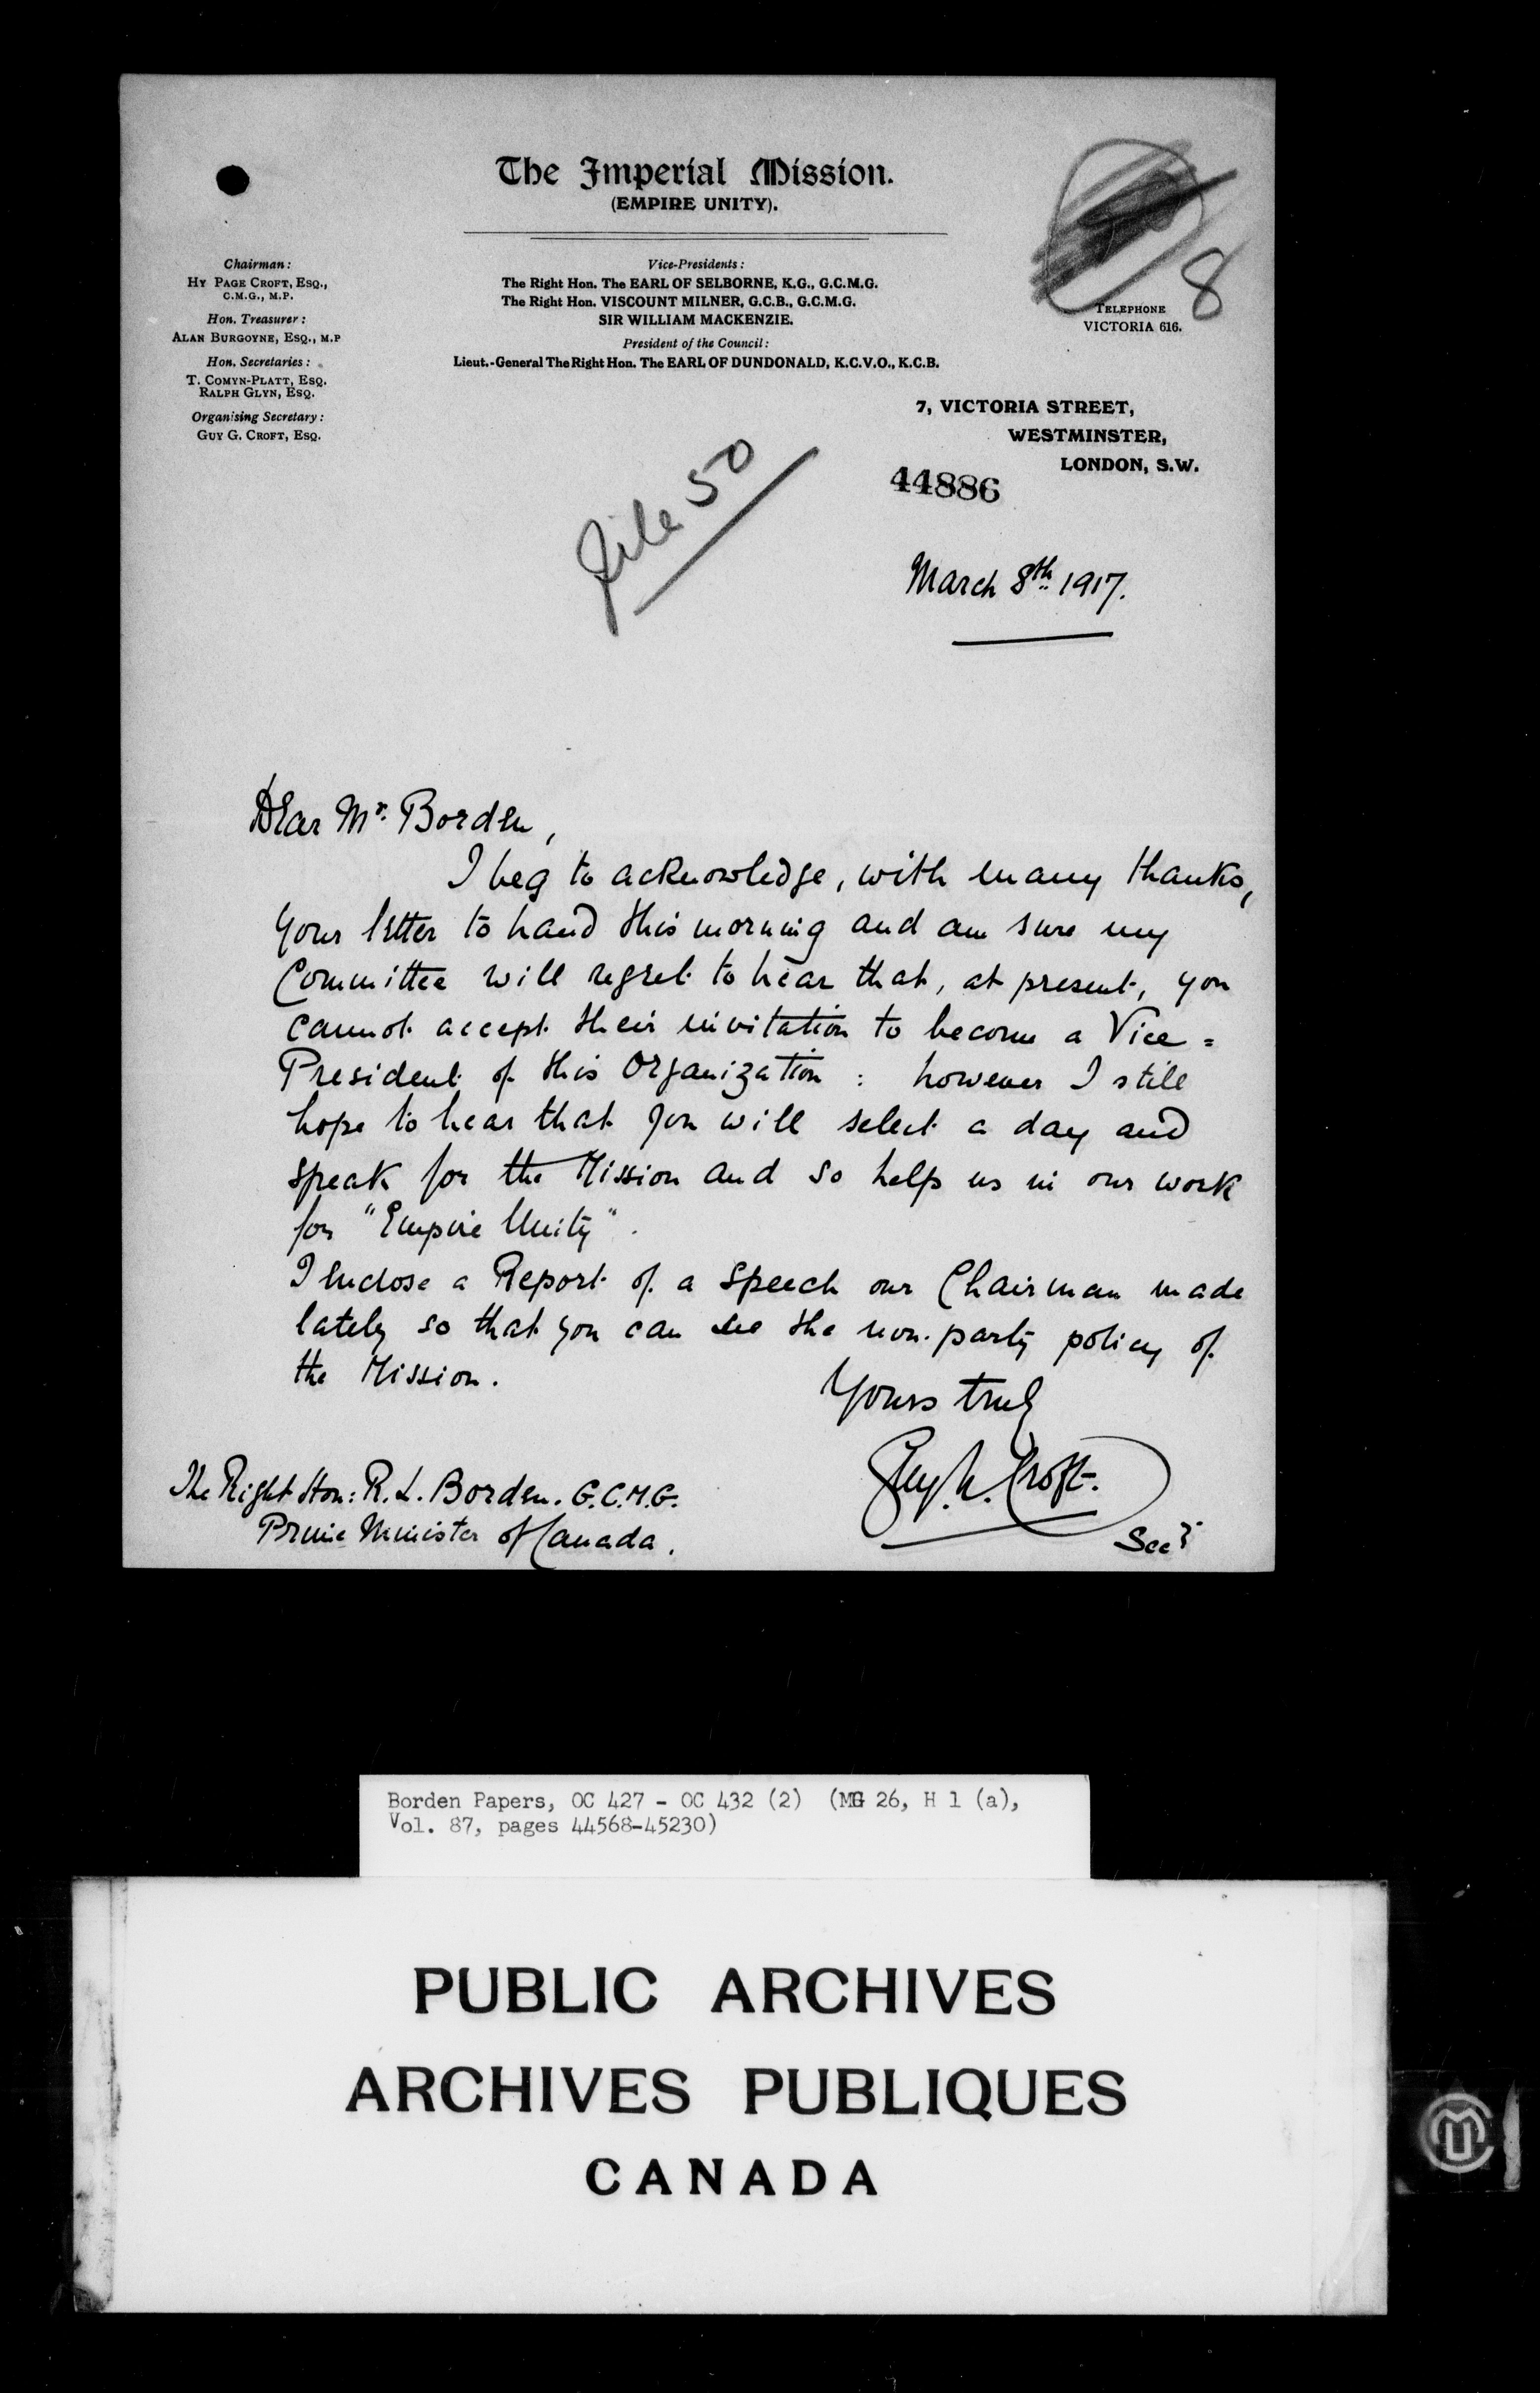 The Imperial Mission.
(EMPIRE UNITY).
8
Chairman:
HY PAGE CROFT, ESQ.,
C.M.G., M.P.
Hon. Treasurer:
ALAN BURGOYNE, ESQ., M.P
Hon. Secretaries:
T. COMYN-PLATT, ESQ.
RALPH GLYN, ESQ.
Organising Secretary:
GUY G. CROFT, ESQ.
Vice-Presidents:
The Right Hon. The EARL OF SELBORNE, K.G., G.C.M.G.
The Right Hon. VISCOUNT MILNER, G.C.B., G.C.M.G.
SIR WILLIAM MACKENZIE.
President of the Council:
Lieut.-General The Right Hon. The EARL OF DUNDONALD, K.C.V.O., K.C.B.
TELEPHONE
VICTORIA 616.
7, VICTORIA STREET,
WESTMINSTER,
LONDON, S.W.
44886
file 50
March 8th 1917.
Dear Mr. Borden,
I beg to acknowledge, with many thanks,
your letter to hand this morning and am sure my
Committee will regret to hear that, at present, you
cannot accept their invitation to become a Vice=
President of this Organization : however I still
hope to hear that you will select a day and
speak for the Mission and so help us in our work
for "Empire Unity".
I enclose a Report of a Speech our Chairman made
lately so that you can see the non-party policy of
the Mission.
Yours truly
Guy G. Croft.
Secy
The Right Hon: R. L. Borden. G.C.M.G.
Prime Minister of Canada.
Borden Papers, OC 427 - OC 432 (2) (MG 26, H 1 (a),
Vol. 87, pages 44568-45230)
PUBLIC ARCHIVES
ARCHIVES PUBLIQUES
CANADA